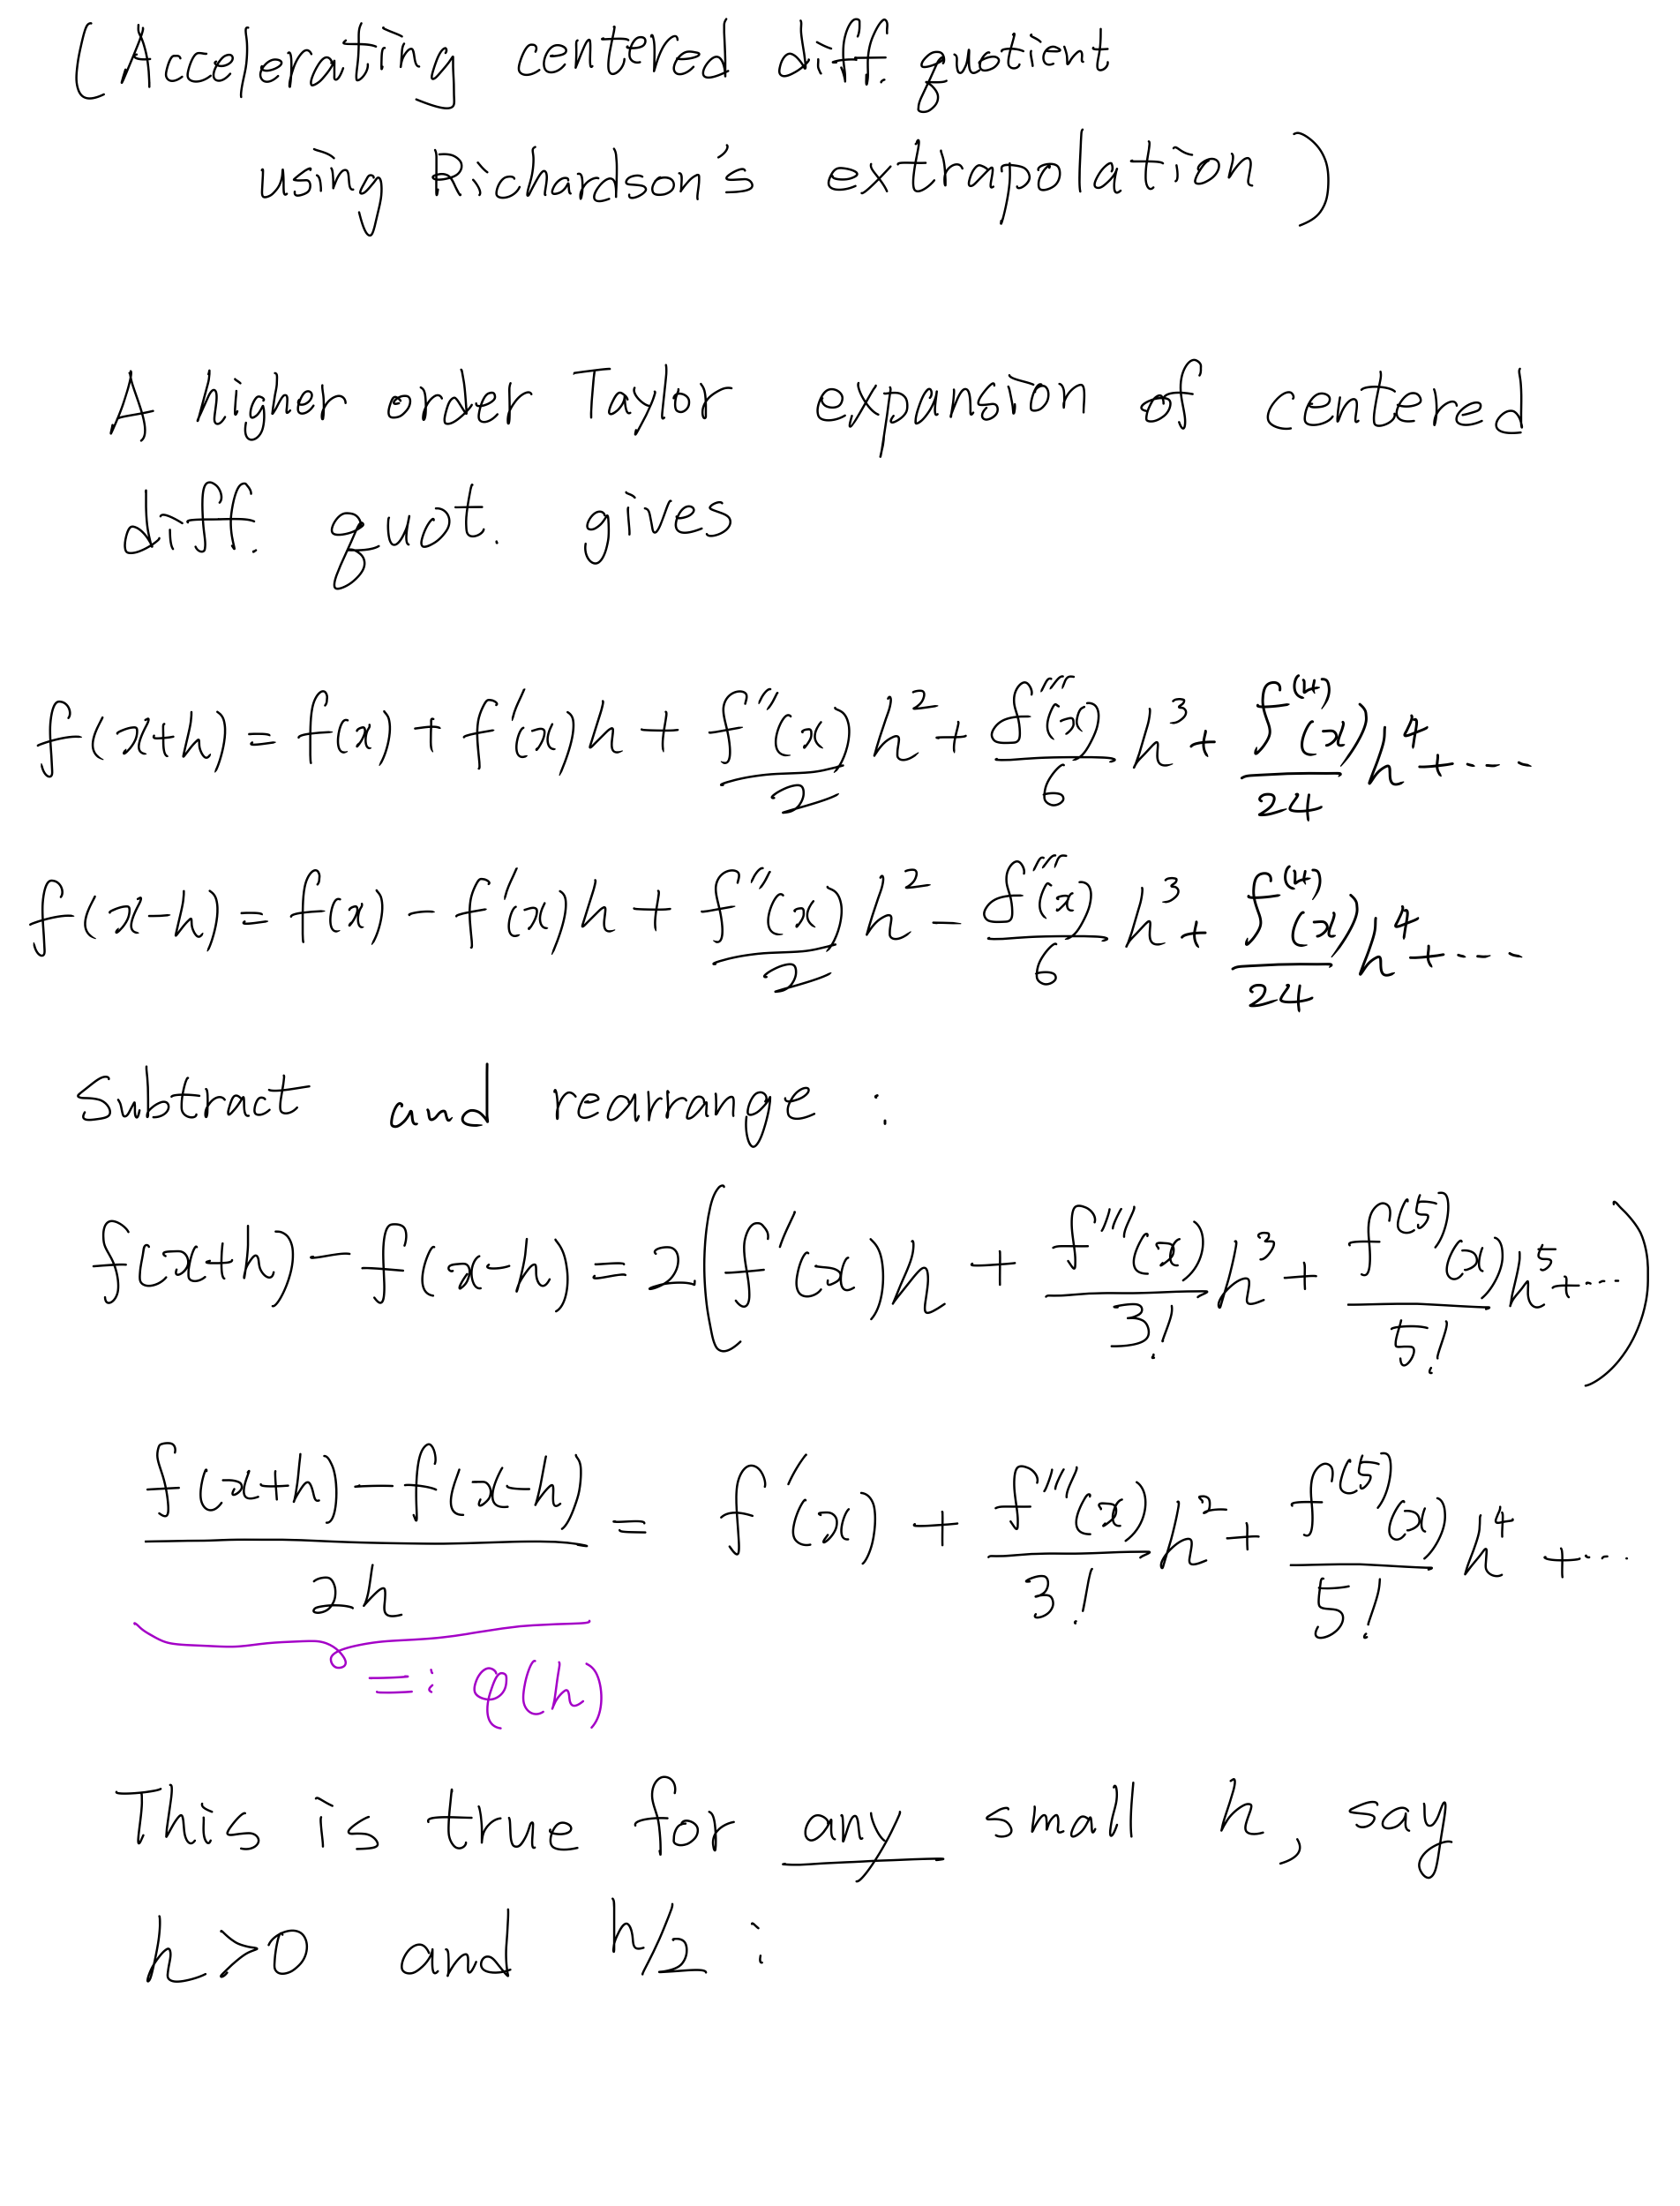 (Accelerating centered diff. quotient
using Richardson's extrapolation)
A higher order Taylor expansion of centered
diff. quot. gives
f(x+h) = f(x) + f'(x)h + f''(x)/2 h² + f'''(x)/6 h³ + f⁽⁴⁾(x)/24 h⁴ + ····
f(x-h) = f(x) - f'(x)h + f''(x)/2 h² - f'''(x)/6 h³ + f⁽⁴⁾(x)/24 h⁴ + ····
Subtract and rearrange :
f(x+h) - f(x-h) = 2(f'(x)h + f'''(x)/3! h³ + f⁽⁵⁾(x)/5! h⁵ + ····)
f(x+h) - f(x-h)/2h = f'(x) + f'''(x)/3! h² + f⁽⁵⁾(x)/5! h⁴ + ···
=: φ(h)
This is true for any small h, say
h>0 and h/2 :